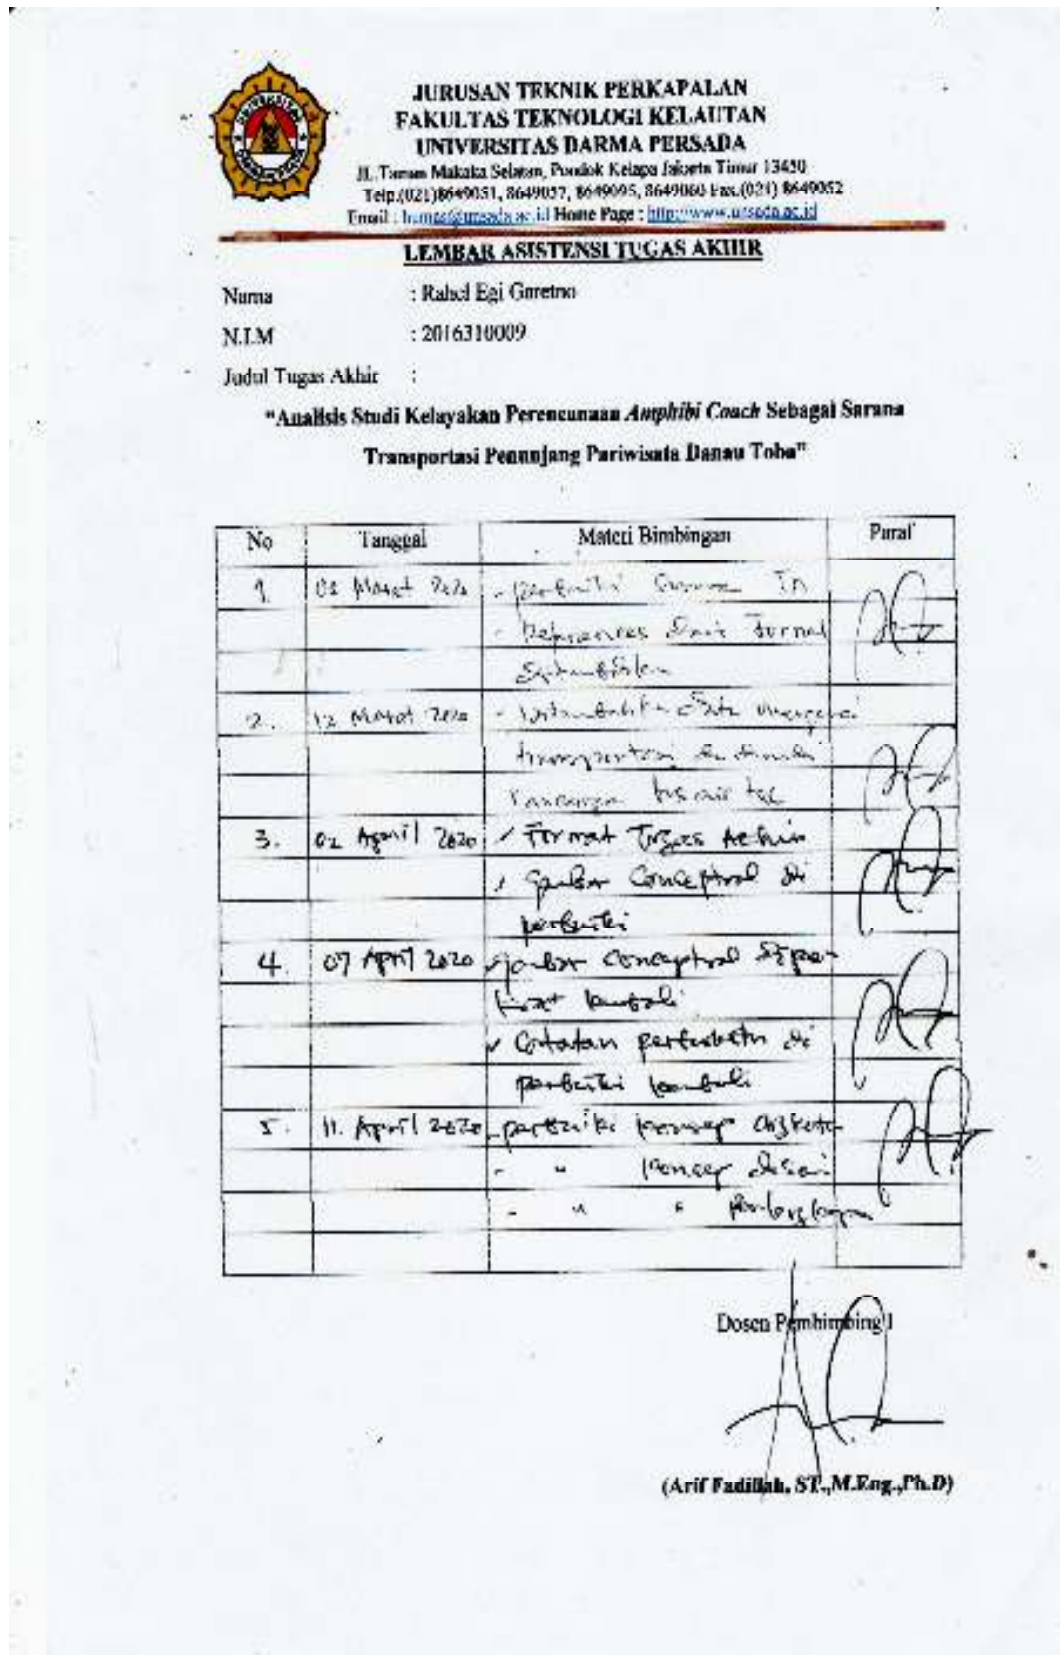 JURUSAN TEKNIK PERKAPALAN
FAKULTAS TEKNOLOGI KELAUTAN
UNIVERSITAS DARMA PERSADA
Jl. Taman Malaka Selatan, Pondok Kelapa Jakarta Timur 13450
Telp.(021)8649051, 8649057, 8649095, 8649060 Fax.(021) 8649052
Email : humas@unsada.ac.id Home Page : http://www.unsada.ac.id
LEMBAR ASISTENSI TUGAS AKHIR
Nama : Rahel Egi
N.I.M : 2016310009
Judul Tugas Akhir :
"Analisis Studi Kelayakan Perencanaan Amphibi Coach Sebagai Sarana
Transportasi Penunjang Pariwisata Danau Toba"
No Tanggal Materi Bimbingan Paraf
1. Maret 2020 - perbaiki
- References dari Jurnal
2. 12 Maret 2020 - data
3. 02 April 2020 Format Tugas Akhir
Gambar Conceptual di
perbaiki
4. 07 April 2020 Gambar Conceptual
kembali
Catatan di
perbaiki kembali
5. 11. April 2020 - perbaiki konsep
- " konsep
- " "
Dosen Pembimbing I
(Arif Fadillah, ST.,M.Eng.,Ph.D)